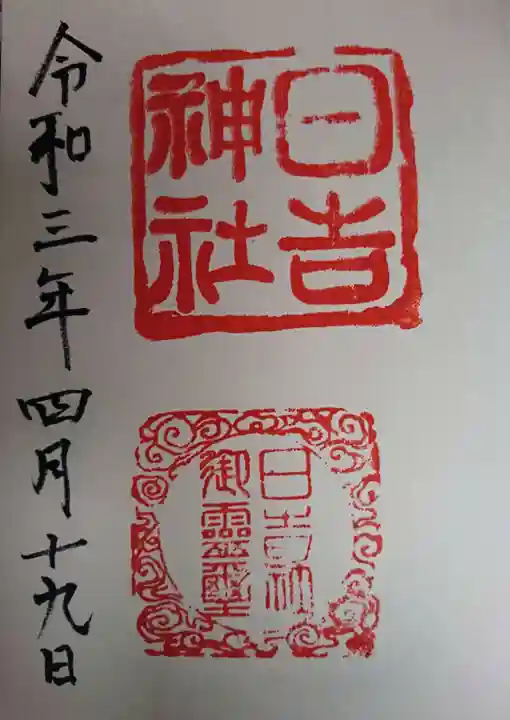 日吉
神社
日吉社
御靈璽
令和三年四月十九日